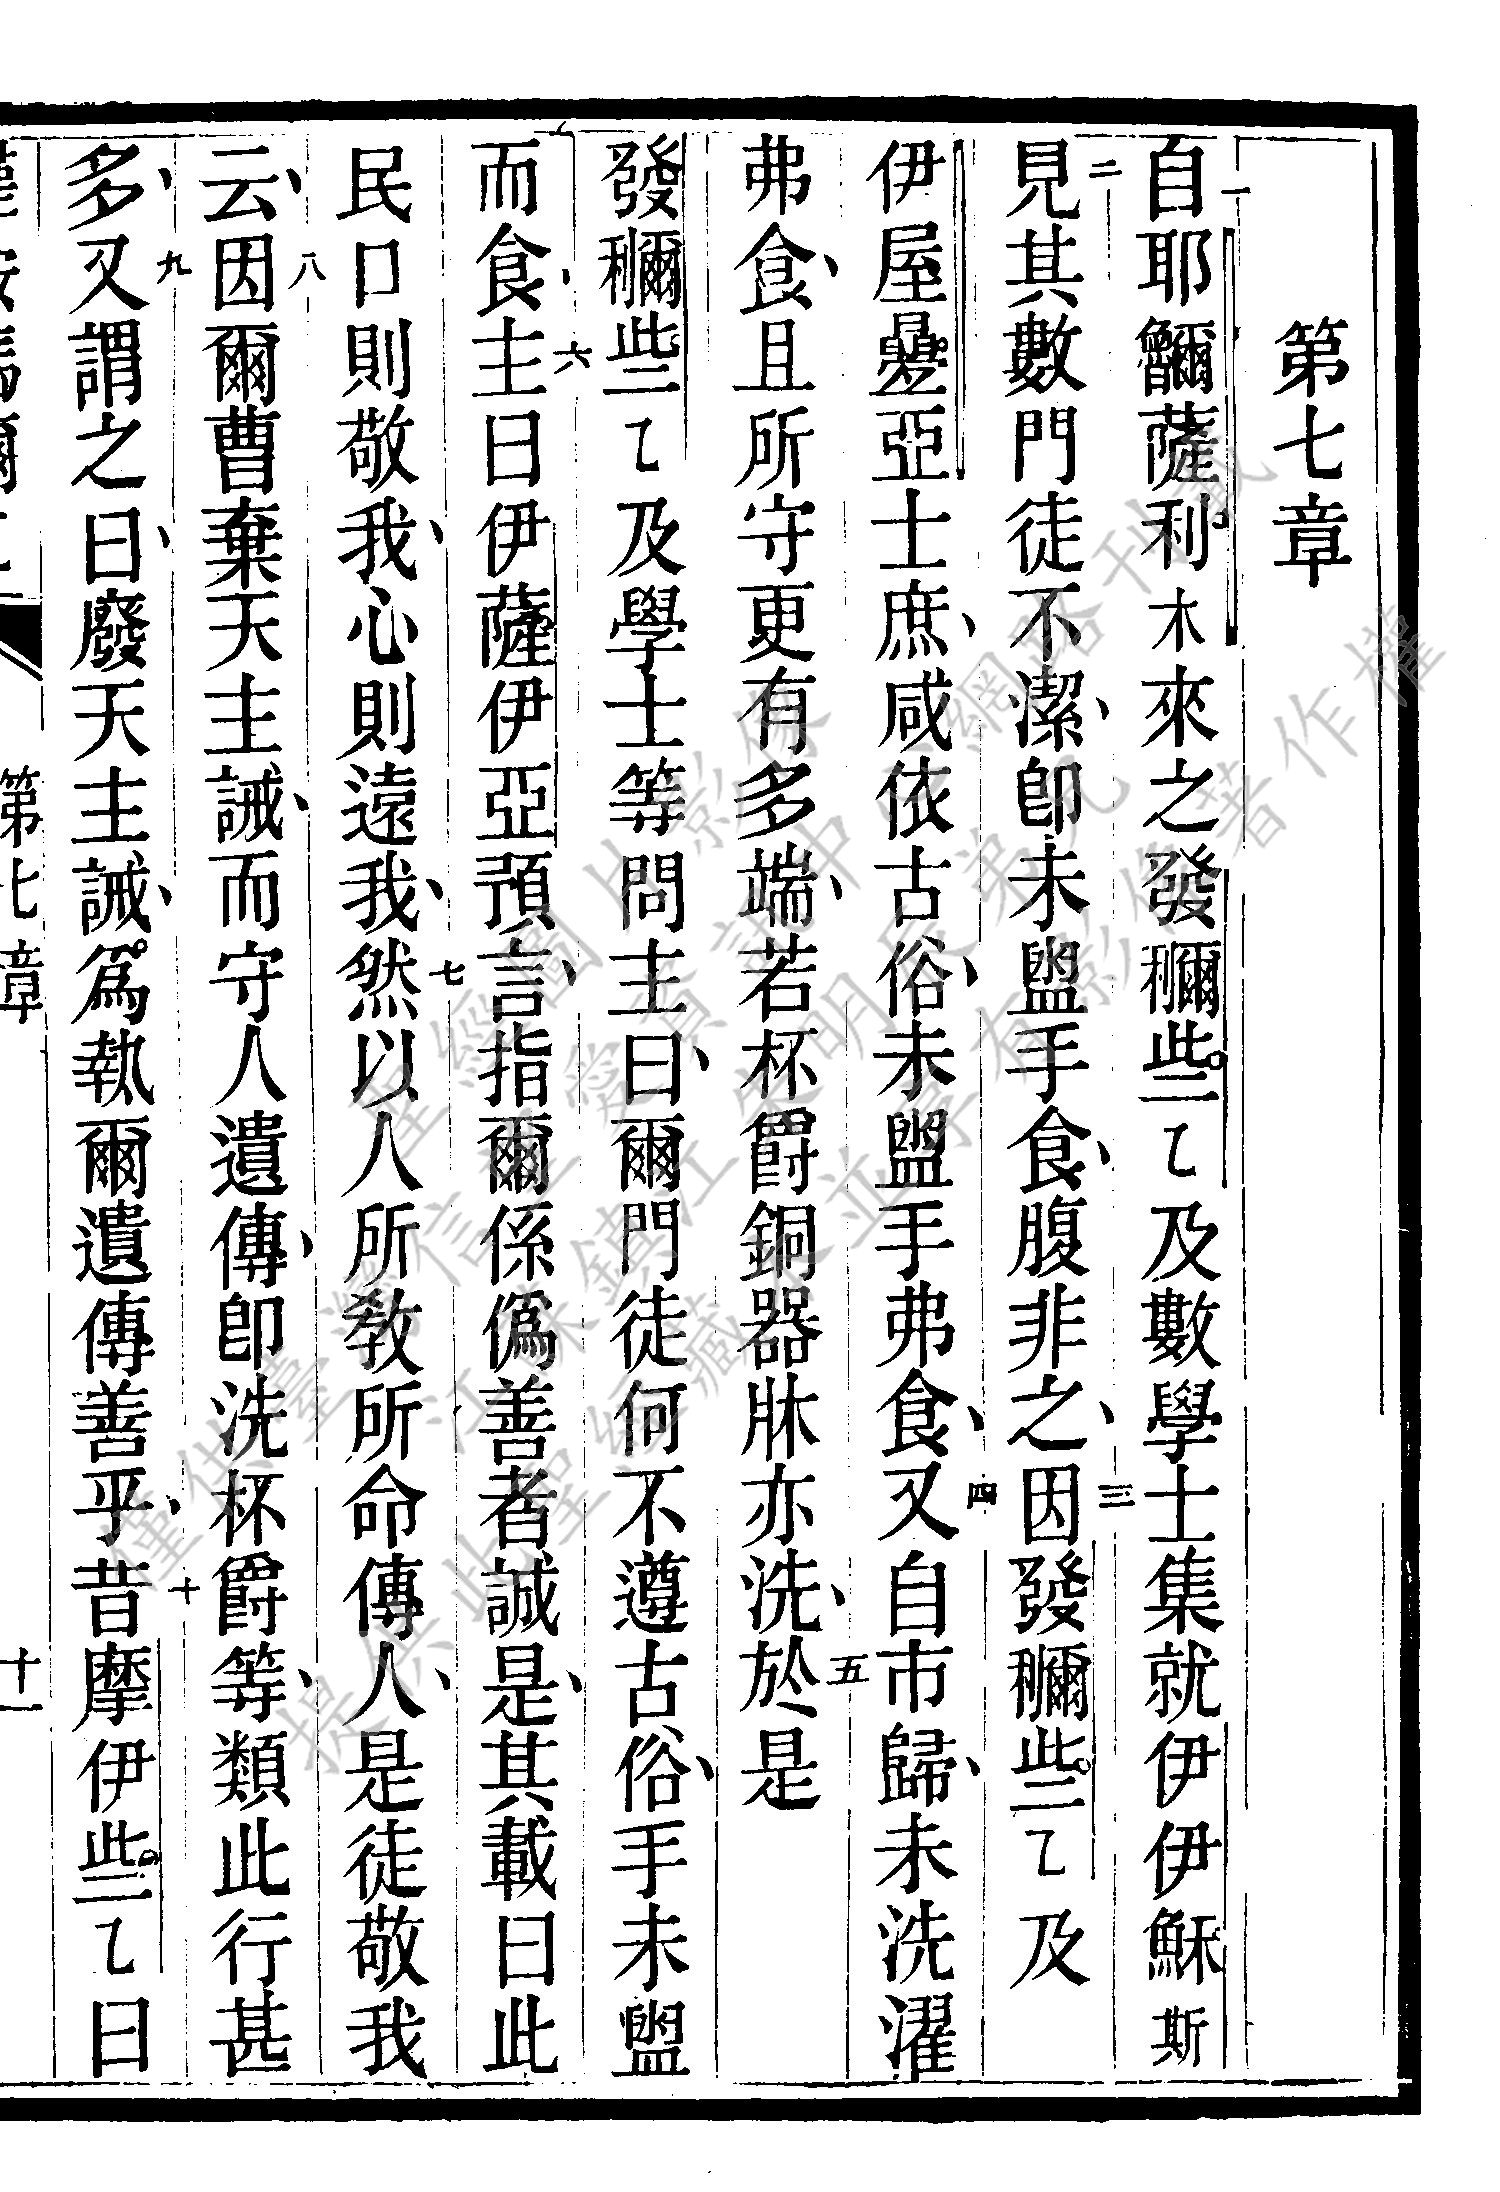 第七章
一自耶𬶨薩利木來之發𥣥些乚及數學士集就伊伊穌斯
二見其數門徒不潔卽未盥手食腹非之三因發𥣥些乚及
伊屋疊亞士庶咸依古俗未盥手弗食又四自市歸未洗濯
弗食且所守更有多端若杯爵銅器牀亦洗五於是
發𥣥些乚及學士等問主曰爾門徒何不遵古俗手未盥
而食六主曰伊薩伊亞預言指爾係僞善者誠是其載曰此
民口則敬我心則遠我七然以人所敎所命傳人是徒敬我
云八因爾曹棄天主誡而守人遺傳卽洗杯爵等類此行甚
多九又謂之曰廢天主誡爲執爾遺傳善乎十昔摩伊些乚曰
第七章
十一
僅供臺灣信望愛信望愛聖經圖片影像